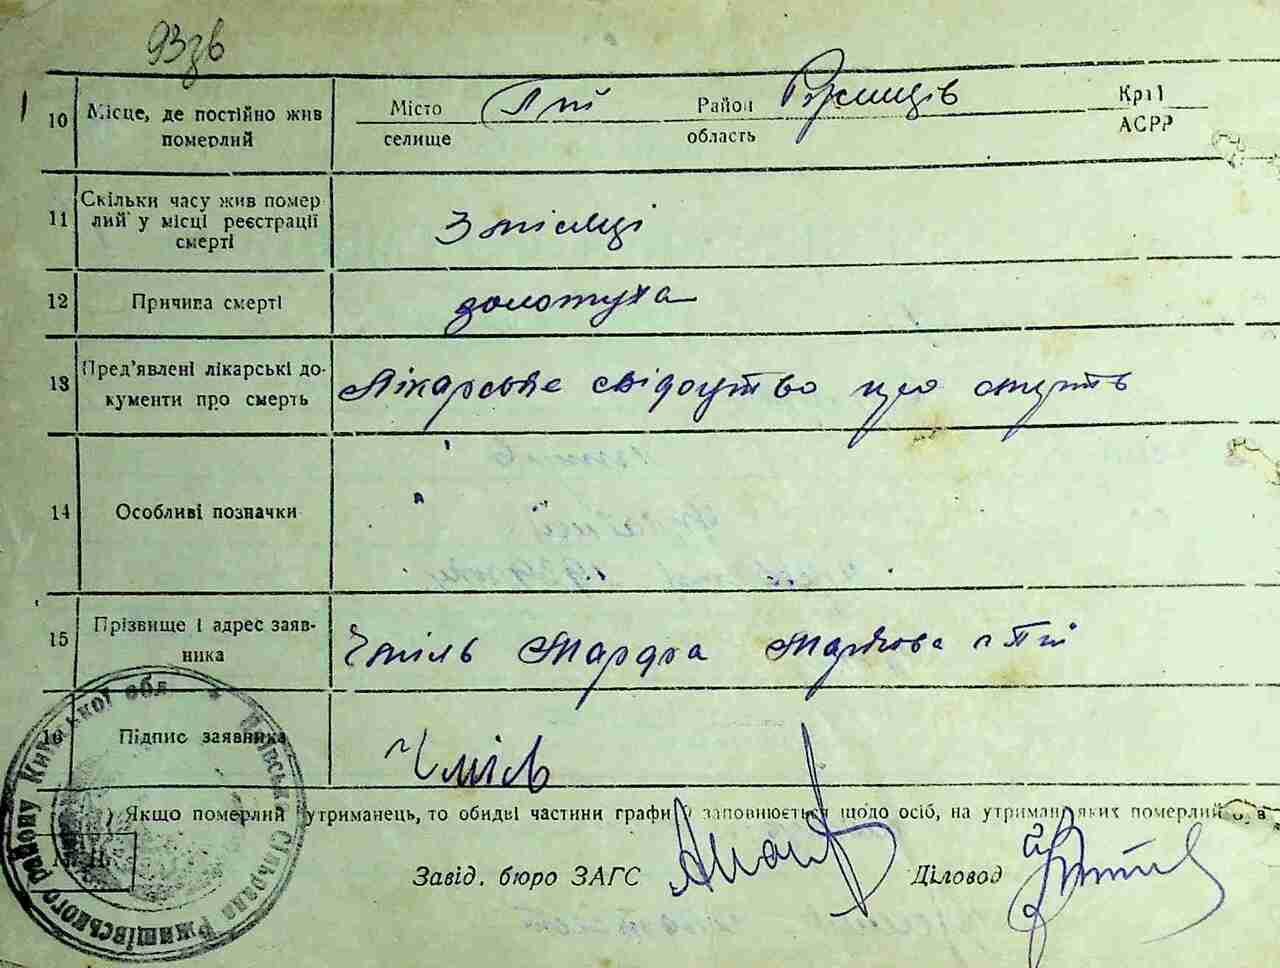 93зв
10
Місце, де постійно жив
померлий
Місто Пії Район Ржищів Край
селище область АСРР
11
Скільки часу жив помер
лий у місці реєстрації
смерті
3 місяці
12
Причина смерті
золотуха
13
Пред'явлені лікарські до-
кументи про смерть
Лікарське свідоцтво про смерть
14
Особливі позначки
15
Прізвище і адрес заяв-
ника
Чміль Марфа с Пії
16
Підпис заявника
Чміль
) Якщо померлий утриманець, то обидві частини графи заповнюється щодо осіб, на утриманні яких померлий був
Завід. бюро ЗАГС
Діловод
Сільрада Ржищівського району Київської обл.